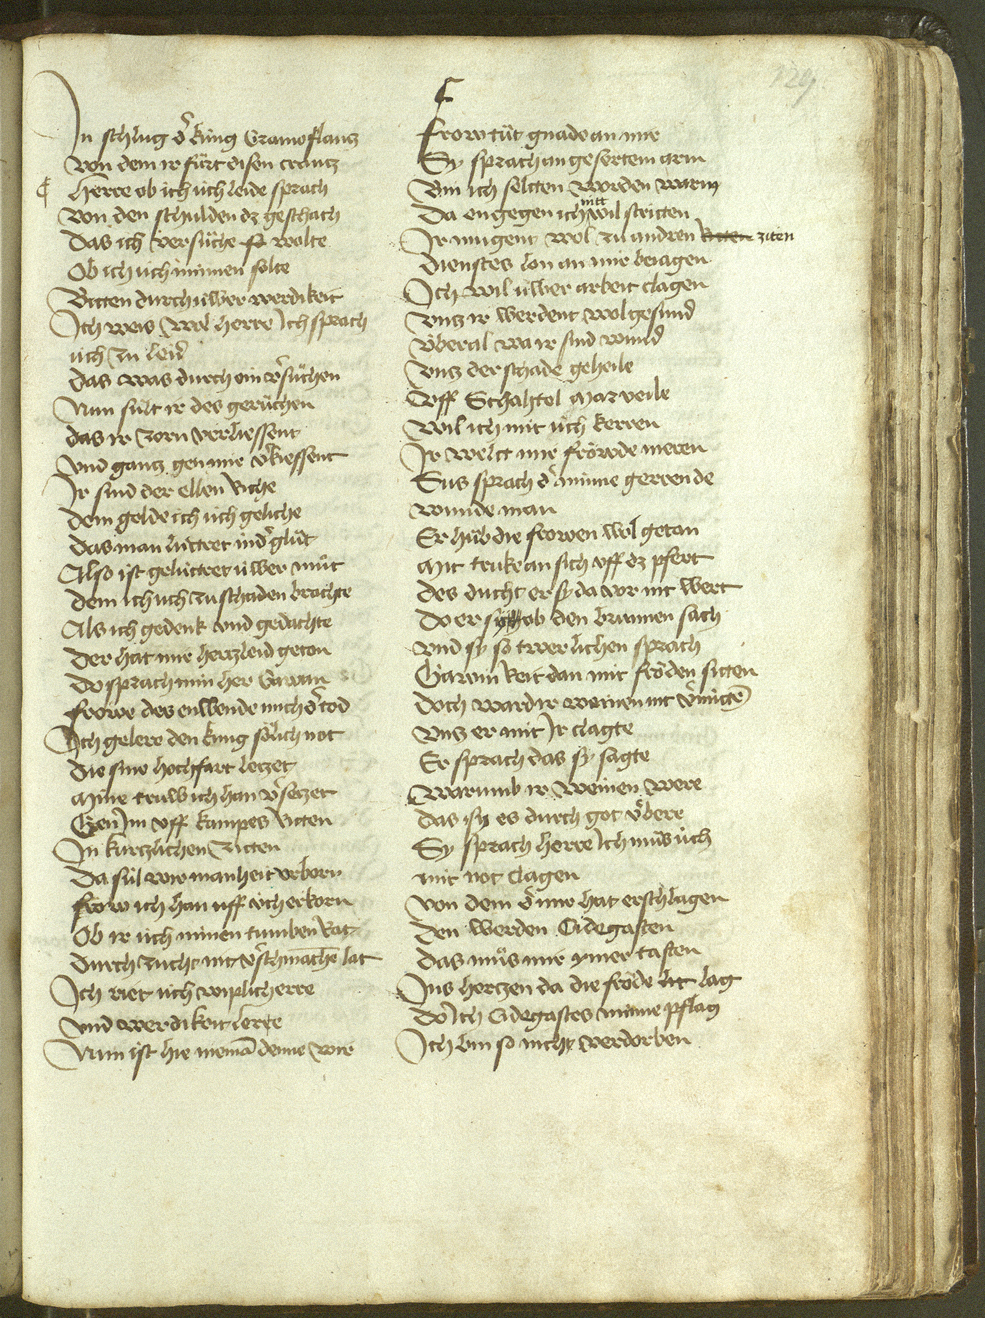 129
C
In schlug d̾ kúng Gramoflantz
Von dem ir fúrt disen crantz
Herre ob ich úch leide sprach
Von den schulden dz geschach
Das ich versůchen wolte
Ob ich úch minnen solte
Bitten durch úwer werdikeit
Ich weis wol herre Ich sprach
úch zu leid̾
das was durch ein v̾sůchen
Nun súlt ir des gerůchen
das ir zorn verliessent
Und gantz gen mir v̾kiessent
Ir sind der ellen riche
dem golde ich úch geliche
das man lúttret in d̾ glůt
Also ist gelúttret úwer můt
dem ich úch zu schaden brachte
Als ich gedenk und gedachte
Der hat mir hertzleid geton
Do sprach min her Gawan
frowe des enwende mich d̾ tod
Ich gelere den kúng sölich not
die sine hochfart letzet
Mine trúw ich han v̾setzet
Gen Im uff kampfes ritten
In kurtzlichen zitten
Da súl wir manheit urborn
frow ich han uff úch erkorn
Ob ir úch minen tumben rat
durch zucht nit v̾schmachē lat
Ich riet úch wiplich erre
Und werdikeit lerre
Nun ist hie niemā denne wir
frow tůt gnade an mir
Sy sprach an gesertem arm
Bin ich selten worden warm
Da engegen ich nitt wil stritten
Ir mugent wol zu andren ziten
dienstes lon an mir beiagen
Ich wil úwer arbeit clagen
Untz ir werdent wol gesund
Úberal wa ir sind wund
Untz der schade geheile
Uff Schahtel Marveile
Wil ich mit úch kerren
Ir welt mir fröwde meren
Sus sprach d̾ minne gerende
wunde man
Er hůb die frowen wol getan
Mit truke an sich uff dz pfert
des ducht er sy da vor nit wert
Do er sy ob den brunnen sach
Und sy so twerlichen sprach
Gawin reit dan mit fröden sitten
doch ward ir weinen nit v̾mittē
Untz er mit Ir clagte
Er sprach das sy sagte
Warumb ir weinen were
das sy es durch got v̾bere
Sy sprach herre Ich můs úch
mit not clagen
Von dem d̾ mir hat erschlagen
den werden Cidegasten
das můs mir ymer tasten
Ins hertzen da die fröde lit lag
Do Ich Cidegastes minne pflag
Ich bin so nicht verdorben